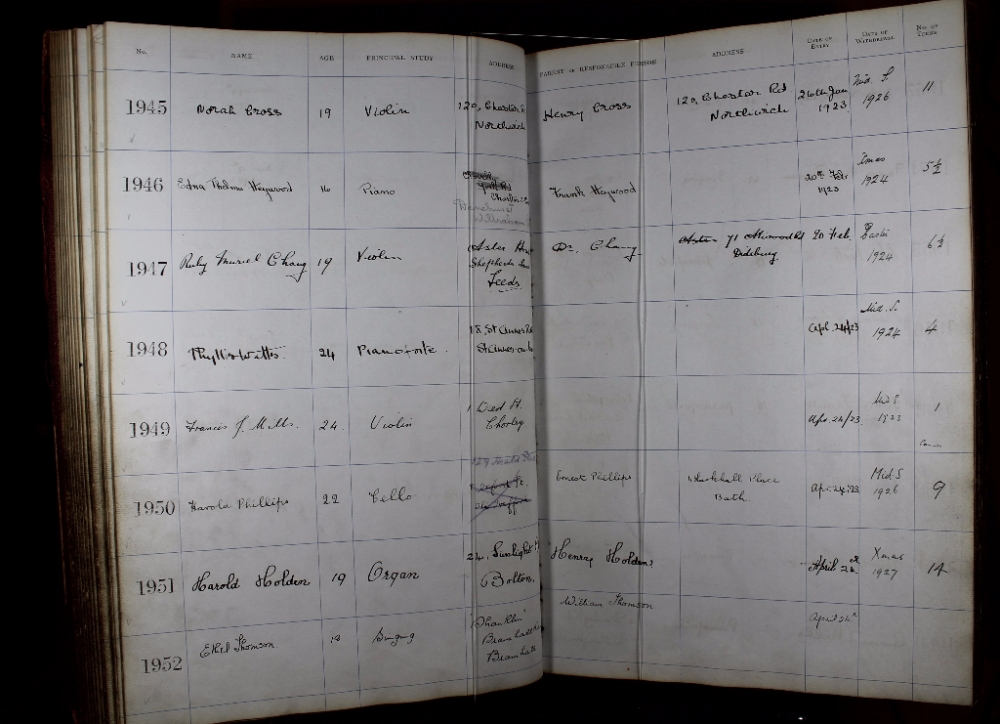 No. NAME AGE PRINCIPAL STUDY ADDRESS PARENT or RESPONSIBLE PERSON ADDRESS DATE OF ENTRY DATE OF WITHDRAWAL NO. OF TERMS
1945 Norah Cross 19 Violin 120, Chester Northwich Henry Cross 120, Chester Rd Northwich 26th Jan 1923 Mid. S. 1926 11
1946 Edna Thelma Heywood 16 Piano Frank Heywood 20th Feb 1923 Xmas 1924 5½
1947 Ruby Muriel Chang 19 Violin Shepherds Leeds Dr. Chang 71 Rd Didsbury 20 Feb. 1924 6½
1948 Phyllis Watts 24 Pianoforte. 18, St Annes Rd Apl. 24/23 Mid. S. 1924 4
1949 Francis J. Mills. 24. Violin Chorley Apr. 24/23 Mid S 1923 1
1950 Harold Phillips 22 'Cello Ernest Phillips Place Bath Apr. 24/23 Mid. S 1926 9
1951 Harold Holden 19 Organ 24, Sunlight Bolton. Henry Holden April 24 Xmas 1927 14
1952 Ethel Thomson Singing Bramhall William Thomson April 24th